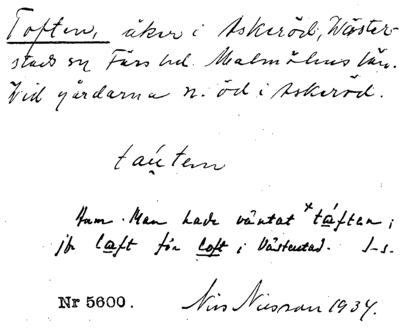 Toften, åker i Askeröd, Väster-
stads sn Färs hd. Malmöhus län.
Vid gårdarna n. öd i Askeröd.
taúten
Anm. Man hade väntat *táften;
jfr laft för loft i Västerstad. I-s.
Nr 5600. Nils Nilsson 1934.